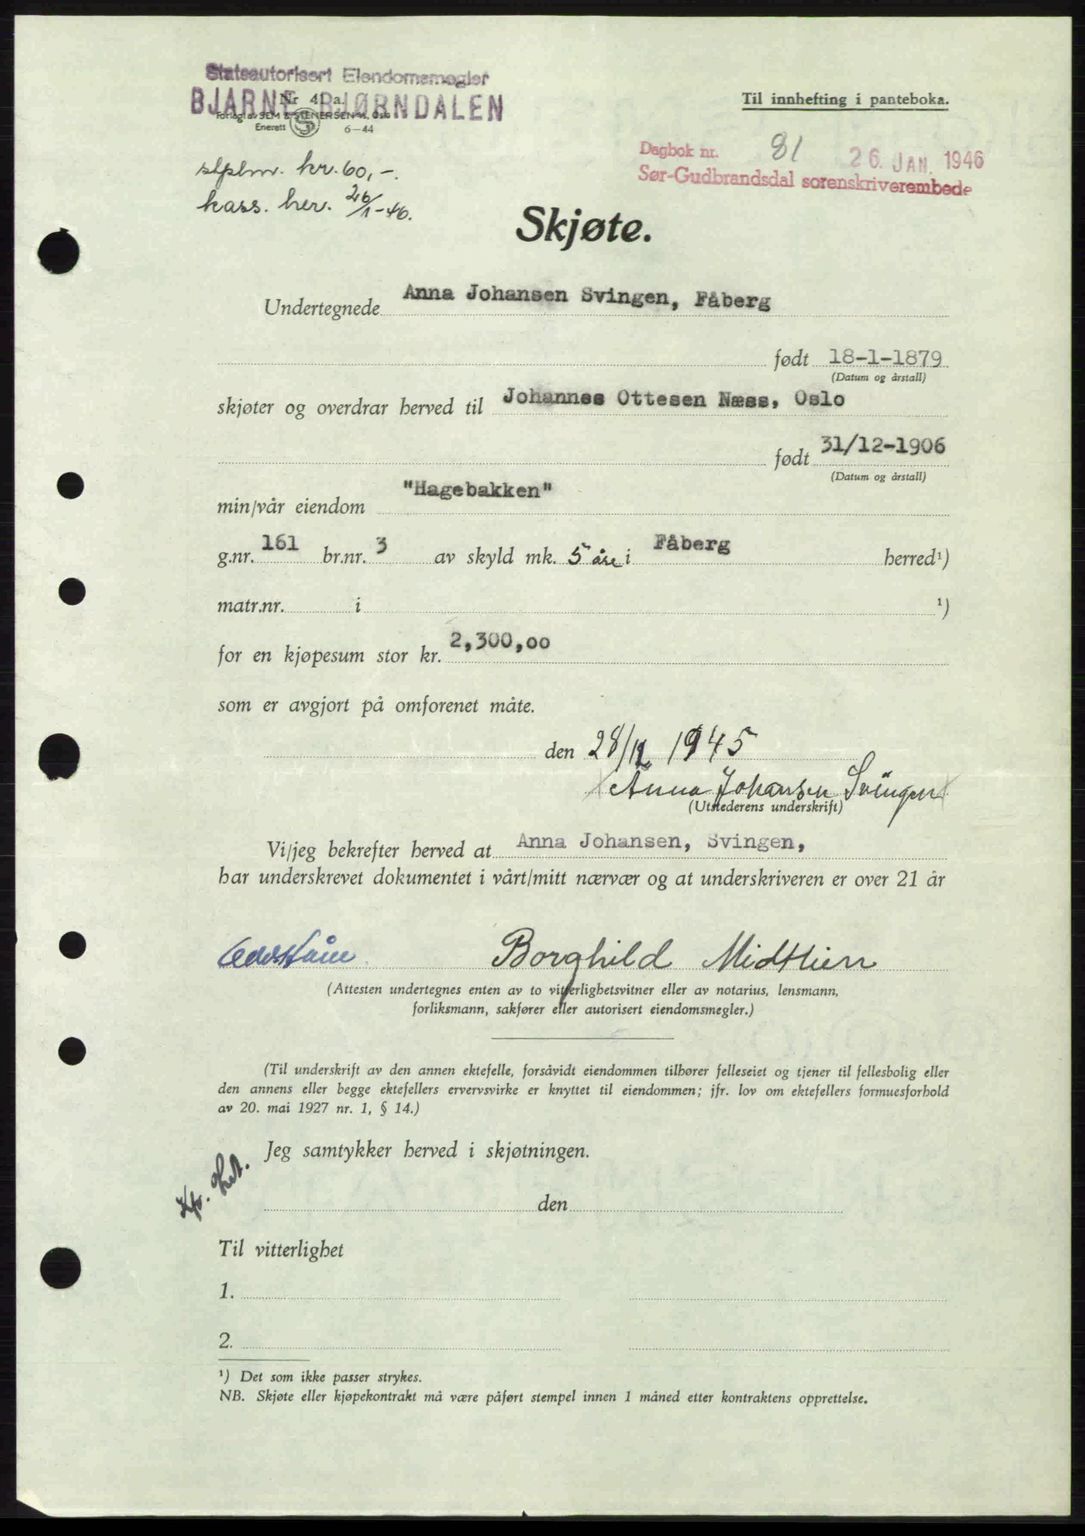 Statsautorisert Eiendomsmegler
BJARNE BJØRNDALEN
Nr 41 a
Forlag av SEM & STENERSEN A/S, Oslo
Enerett S 6-44
Til innhefting i panteboka.
Dagbok nr. 81 26. JAN. 1946
Sør-Gudbrandsdal sorenskriverembede
stplm. kr. 60,-.
kass. her. 26/1-46.
Skjøte.
Undertegnede Anna Johansen Svingen, Fåberg
født 18-1-1879
(Datum og årstall)
skjøter og overdrar herved til Johannes Ottesen Næss, Oslo
født 31/12-1906
(Datum og årstall)
min/vår eiendom "Hagebakken"
g.nr. 161 br.nr. 3 av skyld mk. 5 øre i Fåberg herred¹)
matr.nr. i ¹)
for en kjøpesum stor kr. 2,300,00
som er avgjort på omforenet måte.
den 28/12 1945
Anna Johansen Svingen
(Utstederens underskrift)
Vi/jeg bekrefter herved at Anna Johansen, Svingen,
har underskrevet dokumentet i vårt/mitt nærvær og at underskriveren er over 21 år
Borghild Midtlien
(Attesten undertegnes enten av to vitterlighetsvitner eller av notarius, lensmann,
forliksmann, sakfører eller autorisert eiendomsmegler.)
(Til underskrift av den annen ektefelle, forsåvidt eiendommen tilhører felleseiet og tjener til fellesbolig eller
den annens eller begge ektefellers ervervsvirke er knyttet til eiendommen; jfr. lov om ektefellers formuesforhold
av 20. mai 1927 nr. 1, § 14.)
Jeg samtykker herved i skjøtningen.
den
Til vitterlighet
1.
2.
¹) Det som ikke passer strykes.
NB. Skjøte eller kjøpekontrakt må være påført stempel innen 1 måned etter kontraktens opprettelse.